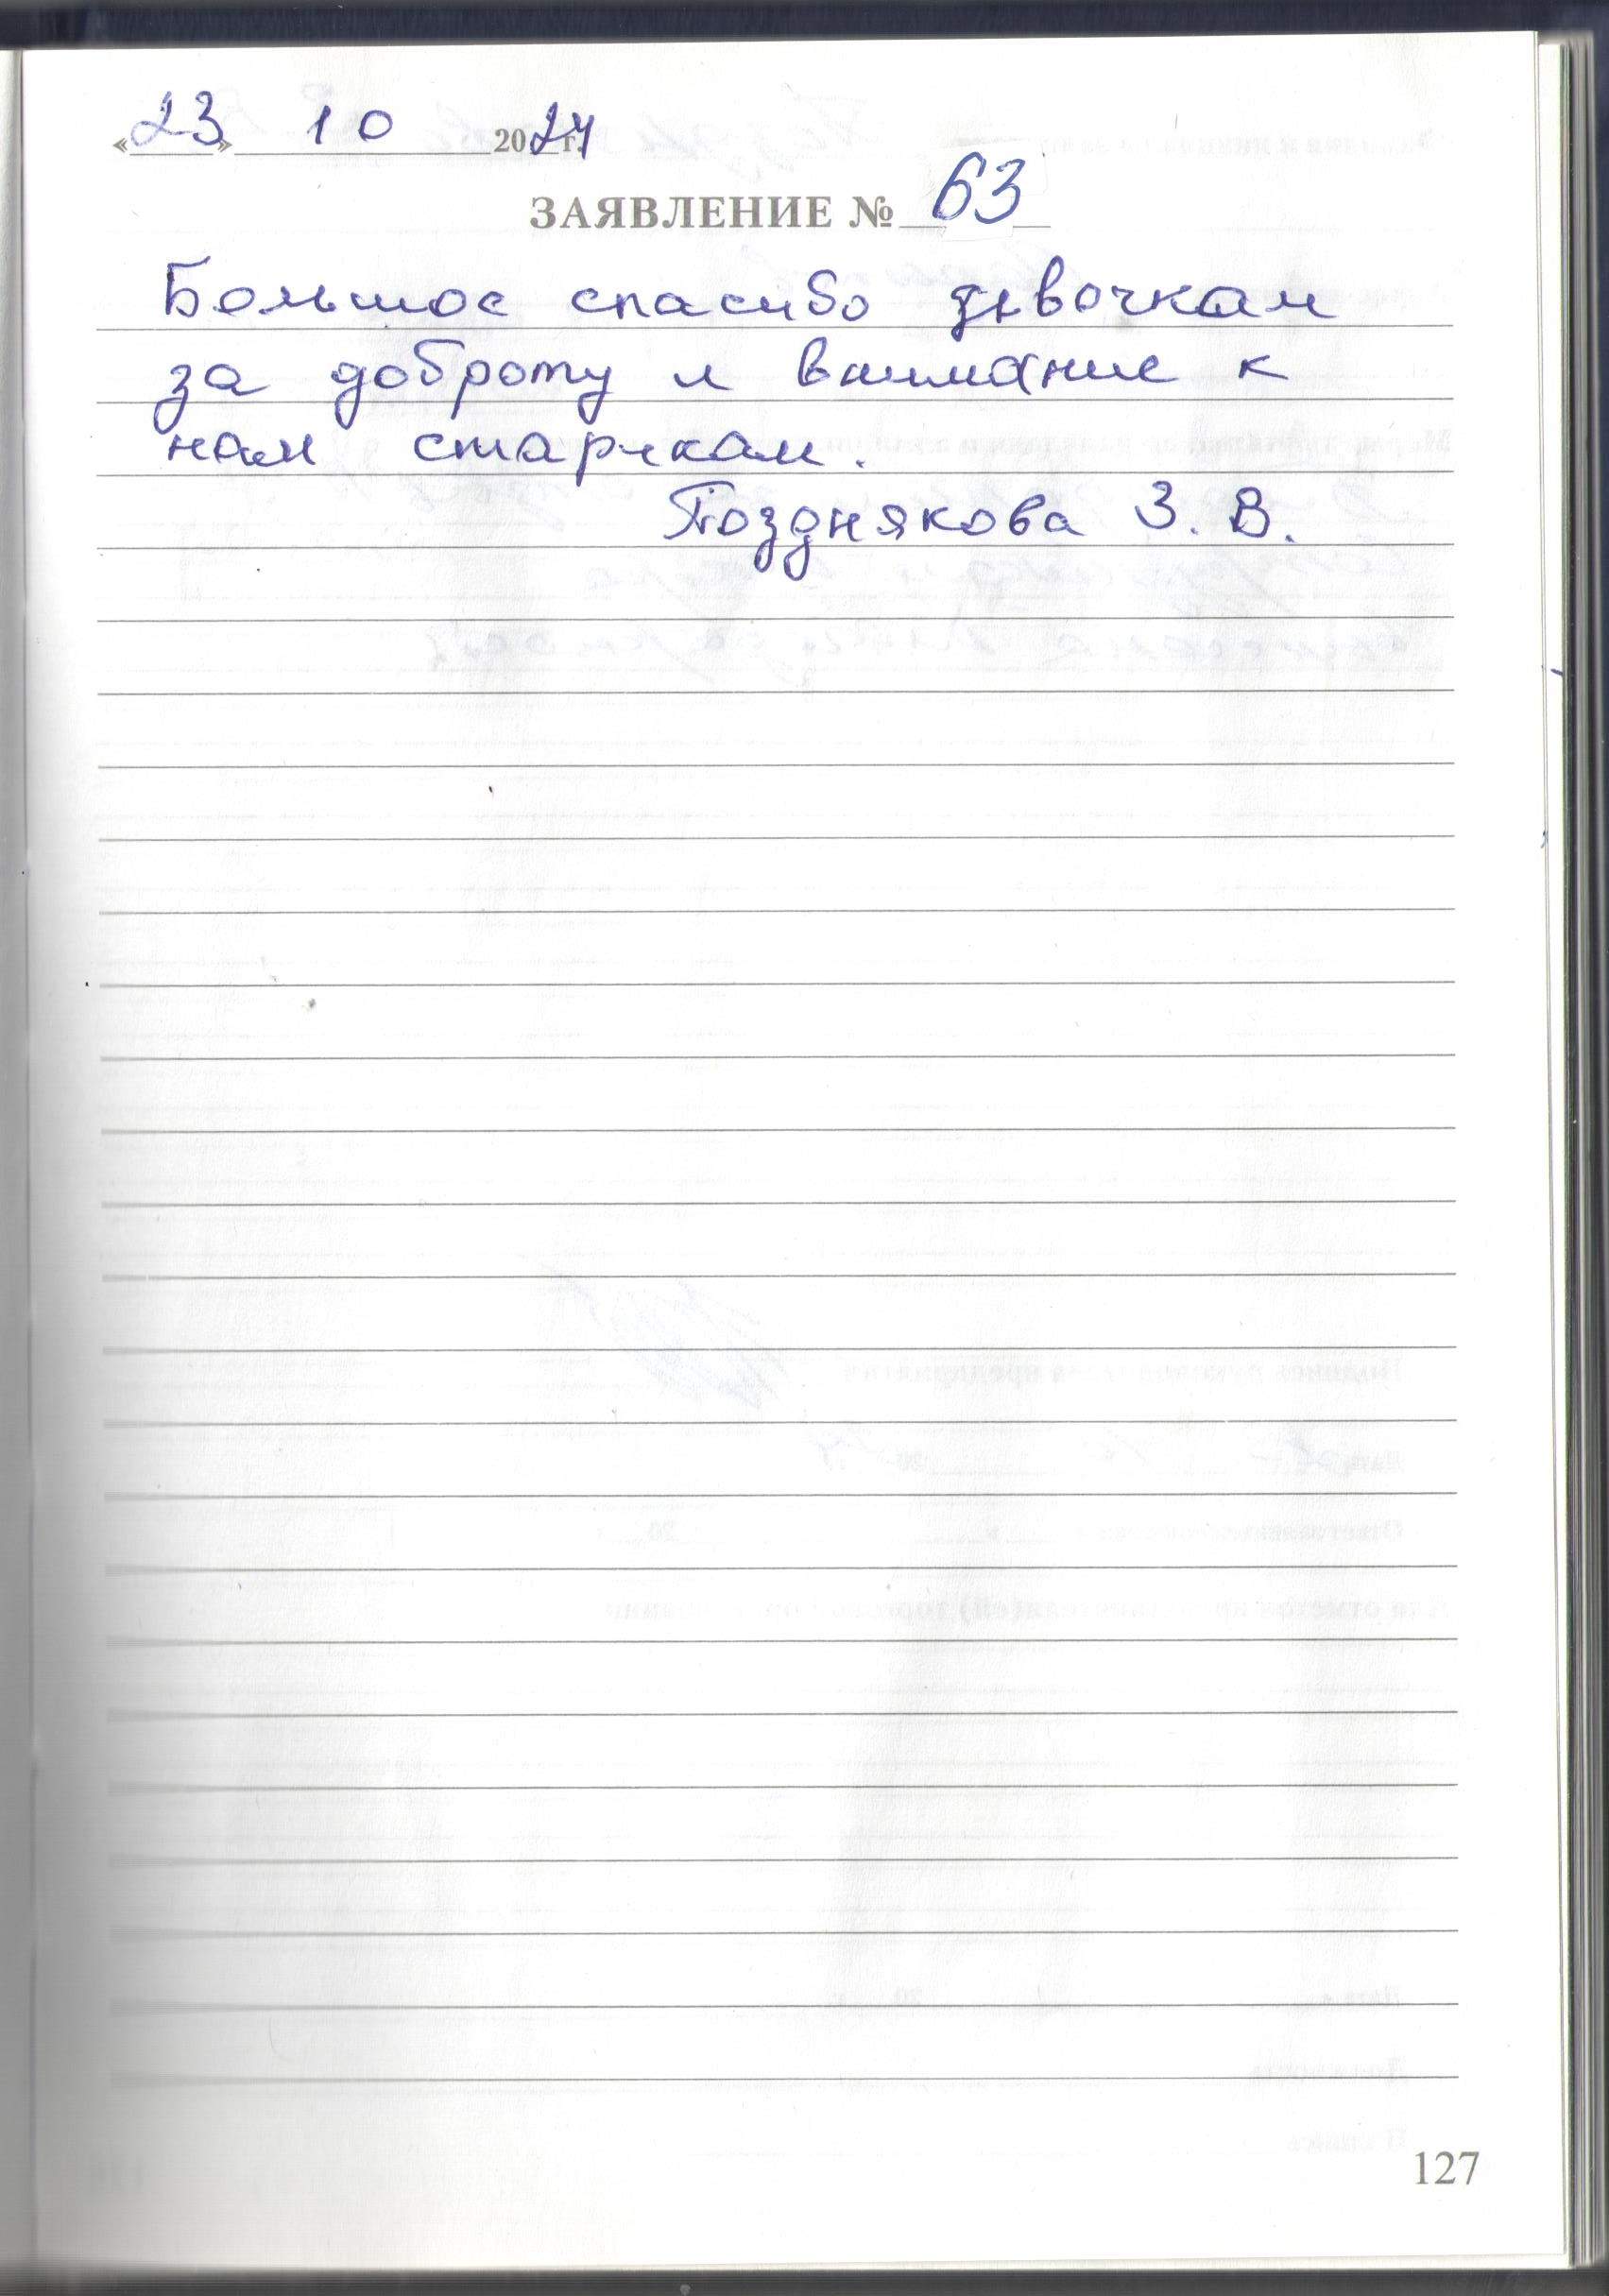 «23» 10 2024 г.
ЗАЯВЛЕНИЕ № 63
Большое спасибо девочкам
за доброту и внимание к
нам старикам.
Позднякова З. В.
127